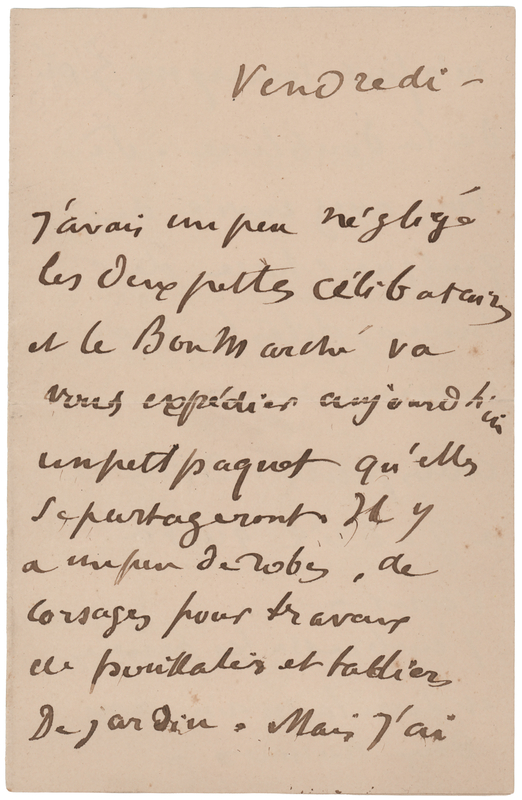 Vendredi -
J'avais un peu négligé
les deux petites célibataires
et le Bon Marché va
vous expédier aujourd'hui
un petit paquet qu'elles
se partageront. Il y
a un peu de robes, de
corsages pour travaux
de poullalier et tabliers
De jardin. Mais j'ai